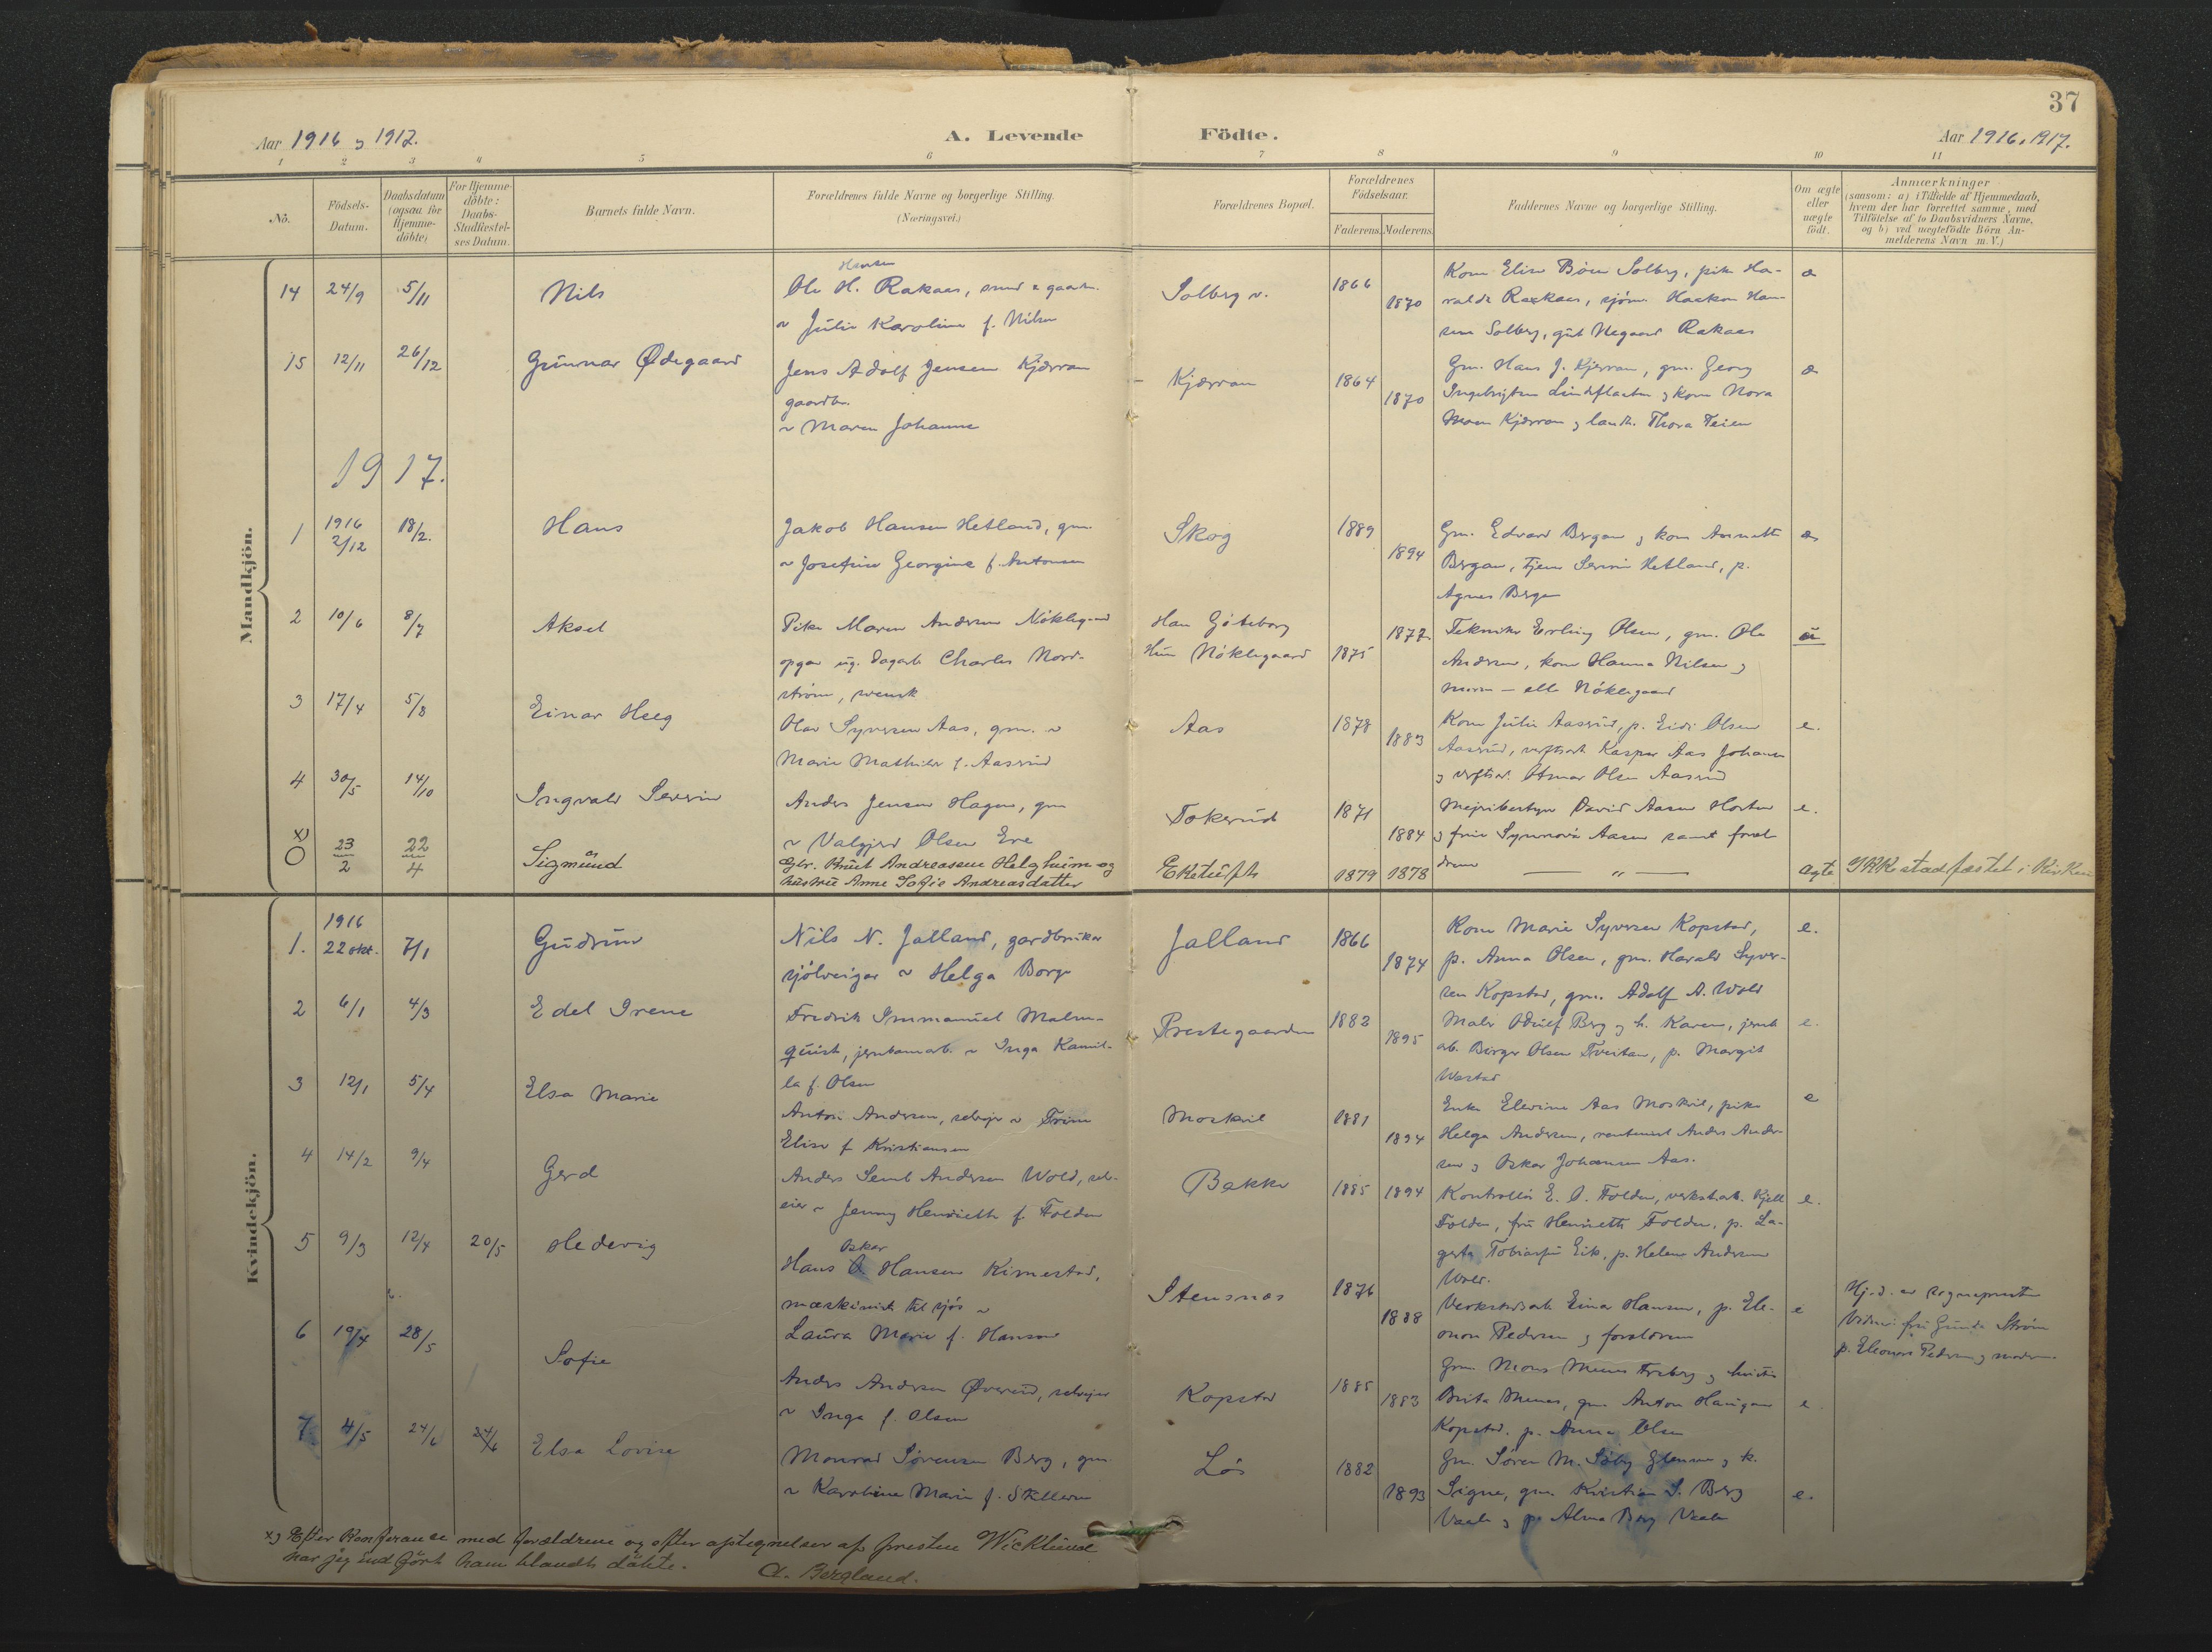 37
Aar 1916 og 1917.
A. Levende Födte.
Aar 1916, 1917.
1 2 3 4 5 6 7 8 9 10 11
No.
Födsels-Datum.
Daabsdatum (ogsaa for Hjemme-döbte)
For Hjemme-döbte: Daabs-Stadfæstel-ses Datum.
Barnets fulde Navn.
Forældrenes fulde Navne og borgerlige Stilling.
(Næringsvei.)
Forældrenes Bopæl.
Forældrenes Födselsaar.
Faderens. Moderens.
Faddernes Navne og borgerlige Stilling.
Om ægte eller uægte födt.
Anmærkninger
(saasom: a) i Tilfælde af Hjemmedaab, hvem der har forrettet samme, med Tilföielse af to Daabsvidners Navne, og b) ved uægtefödte Börn An-melderens Navn m. V.)
Mandkjön.
14 24/9 5/11 Nils
Hansen
Ole H. Rakaas, smed & gaardbr.
~ Julie Karoline f. Nilsen
Solberg v. 1866 1870
Kone Elise Böen Solberg, pike Ha-
ralda Raakaas, sjöm. Haakon Han-
sen Solberg, gut Rakaas
æ
15 12/11 26/12 Gunnar Ødegaard
Jens Adolf Jensen Kjærran
gaardbr.
~ Maren Johanne
Kjærran 1864 1870
Gm. Hans J. Kjærran, gm. Georg
Ingebrigtsen og kone Nora
Kjærran og Thora Feien
æ
1917.
1 1916 2/12 18/2. Hans
Jakob Hansen Hetland, gm.
~ Josefine Georgine f. Antonsen
Skog 1889 1894
Gm. Edvard Bergan og kone Annette
Bergan, tjen. Severin Hetland, p.
Agnes Bergan
æ
2 10/6 8/7 Aksel
Pike Maren Andersen Nöklegaard
opga ug. dagarb. Charles Nord-
ström, svensk
Han Göteborg
Hun Nöklegaard
1875 1877
Tekniker Erling Olsen, gm. Ole
Andersen, kone Hanna Nilsen og
moren – alle Nöklegaard
u
3 17/4 5/8 Einar Helg
Olav Syversen Aas, gm. ~
Marie Mathilde f. Aasrud
Aas 1878 1883
Kone Julie Aasrud, p. Eidi Olsen
Aasrud, verftsarb. Kaspar Aas Johansen
og verftsar. Otmar Olsen Aasrud
e.
4 30/5 14/10 Ingvald Severin
Anders Jensen Hagen, gm
~ Valgjerd Olsen Eve
Tokerud 1871 1884
Meieribestyrer David Aasen Horten
og frue Synnöva Aasen samt foræl-
drene
e.
x) O 23/2 22/4 Sigmund
Gbr. Knut Andreassen Helgheim og
hustru Anne Sofie Andreasdatter
Eketuft 1879 1878 — „ —
ægte
Ikke stadfæstet i Kirken
Kvindekjön.
1. 1916 22 okt. 7/1 Gudrun
Nils N. Jalland, gardbruker
sjölveigar ~ Helga Borge
Jalland 1866 1874
Kone Marie Syversen Kopstad,
p. Anna Olsen, gm. Harald Syver-
sen Kopstad, gm. Adolf A. Wold
e.
2 6/1 4/3 Edel Irene
Fredrik Immanuel Malm-
quist, jernbanearb. ~ Inga Kamil-
la f. Olsen
Prestegaarden 1882 1895
Maler Berg og h. Karen, jernb.
arb. Birger Olsen Tveitan, p. Margit
e.
3 12/1 5/4 Elsa Marie
Anton Andersen, selveier ~ Trine
Elise f Kristiansen
Moskvil 1881 1894
Enke Elevine Aas Moskvil, pike
Helga Andersen, Anders Ander-
sen og Oskar Johansen Aas.
e
4 14/2 9/4 Gerd
Anders Semb Andersen Wold, selv-
eier ~ Jenny Henriette f. Folden
Bekke 1885 1894
Kontrollör E. O. Folden, verkst.arb. Kjell
Folden, fru Henriette Folden, p. La-
gerta Eik, p. Helene Andersen
Wold.
e.
5 9/3 12/4 20/5 Hedevig
Oskar
Hans O. Hansen Kimestad,
maskinist til sjös ~
Laura Marie f. Hansen
Stensnes 1876 1888
Verkstedsarb. Einar Hansen, p. Ele-
onore Pedersen og forældrene
e
Hj. d. av sogneprest
Vidner: fru Gunda Ström
p. Eleonore Pedersen og moderen.
6 19/4 28/5 Sofie
Anders Andersen Øverud, selveier
~ Inga f. Olsen
Kopstad 1885 1883
Gm. Mons Menes og hustru
Brita Menes, gm. Anton Haugan
Kopstad, p. Anna Olsen
e.
7. 4/5 24/6 24/6 Elsa Lovise
Monrad Sörensen Berg, gm.
~ Karoline Marie f. Skillern
Lös 1882 1893
Gm. Sören M. og k.
Signe, gm. Kristian S. Berg
Vaale og p. Alma Berg Vaale
e.
x) Efter Konferanse med forældrene og efter optegnelser af presten Wicklund
har jeg indfört ham blandt döbte. A. Bergland.